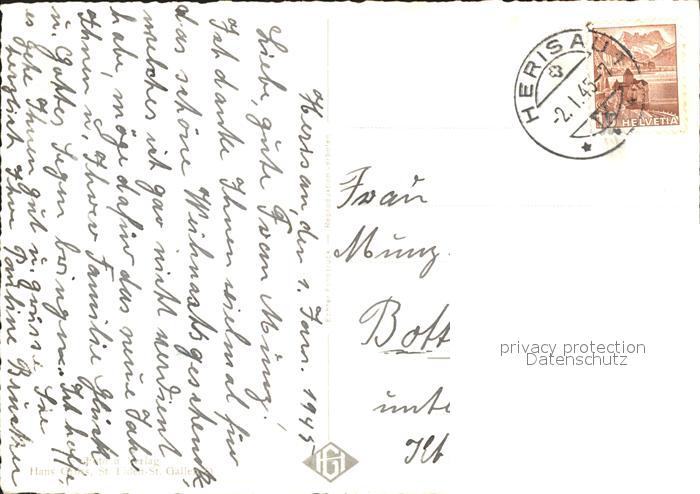 Herisau, den 1. Jan. 1945.
Liebe, gute Frau Münz!
Ich danke Ihnen vielmal für
das schöne Weihnachtsgeschenk,
welches ich gar nicht verdient
habe, möge dafür das neue Jahr
Ihnen u. Ihrer Familie Glück
u. Gottes Segen bringen. Ich hoffe,
es gehe Ihnen gut u. grüsse Sie
herzlich Ihre Pauline
HERISAU 1
-2.I.45-7
HELVETIA
Frau
Münz
Bott
unte
privacy protection
Datenschutz
Echte Photographie — Reproduktion verboten
Foto u. Verlag
Hans Gross, St. Fiden-St. Gallen
HG